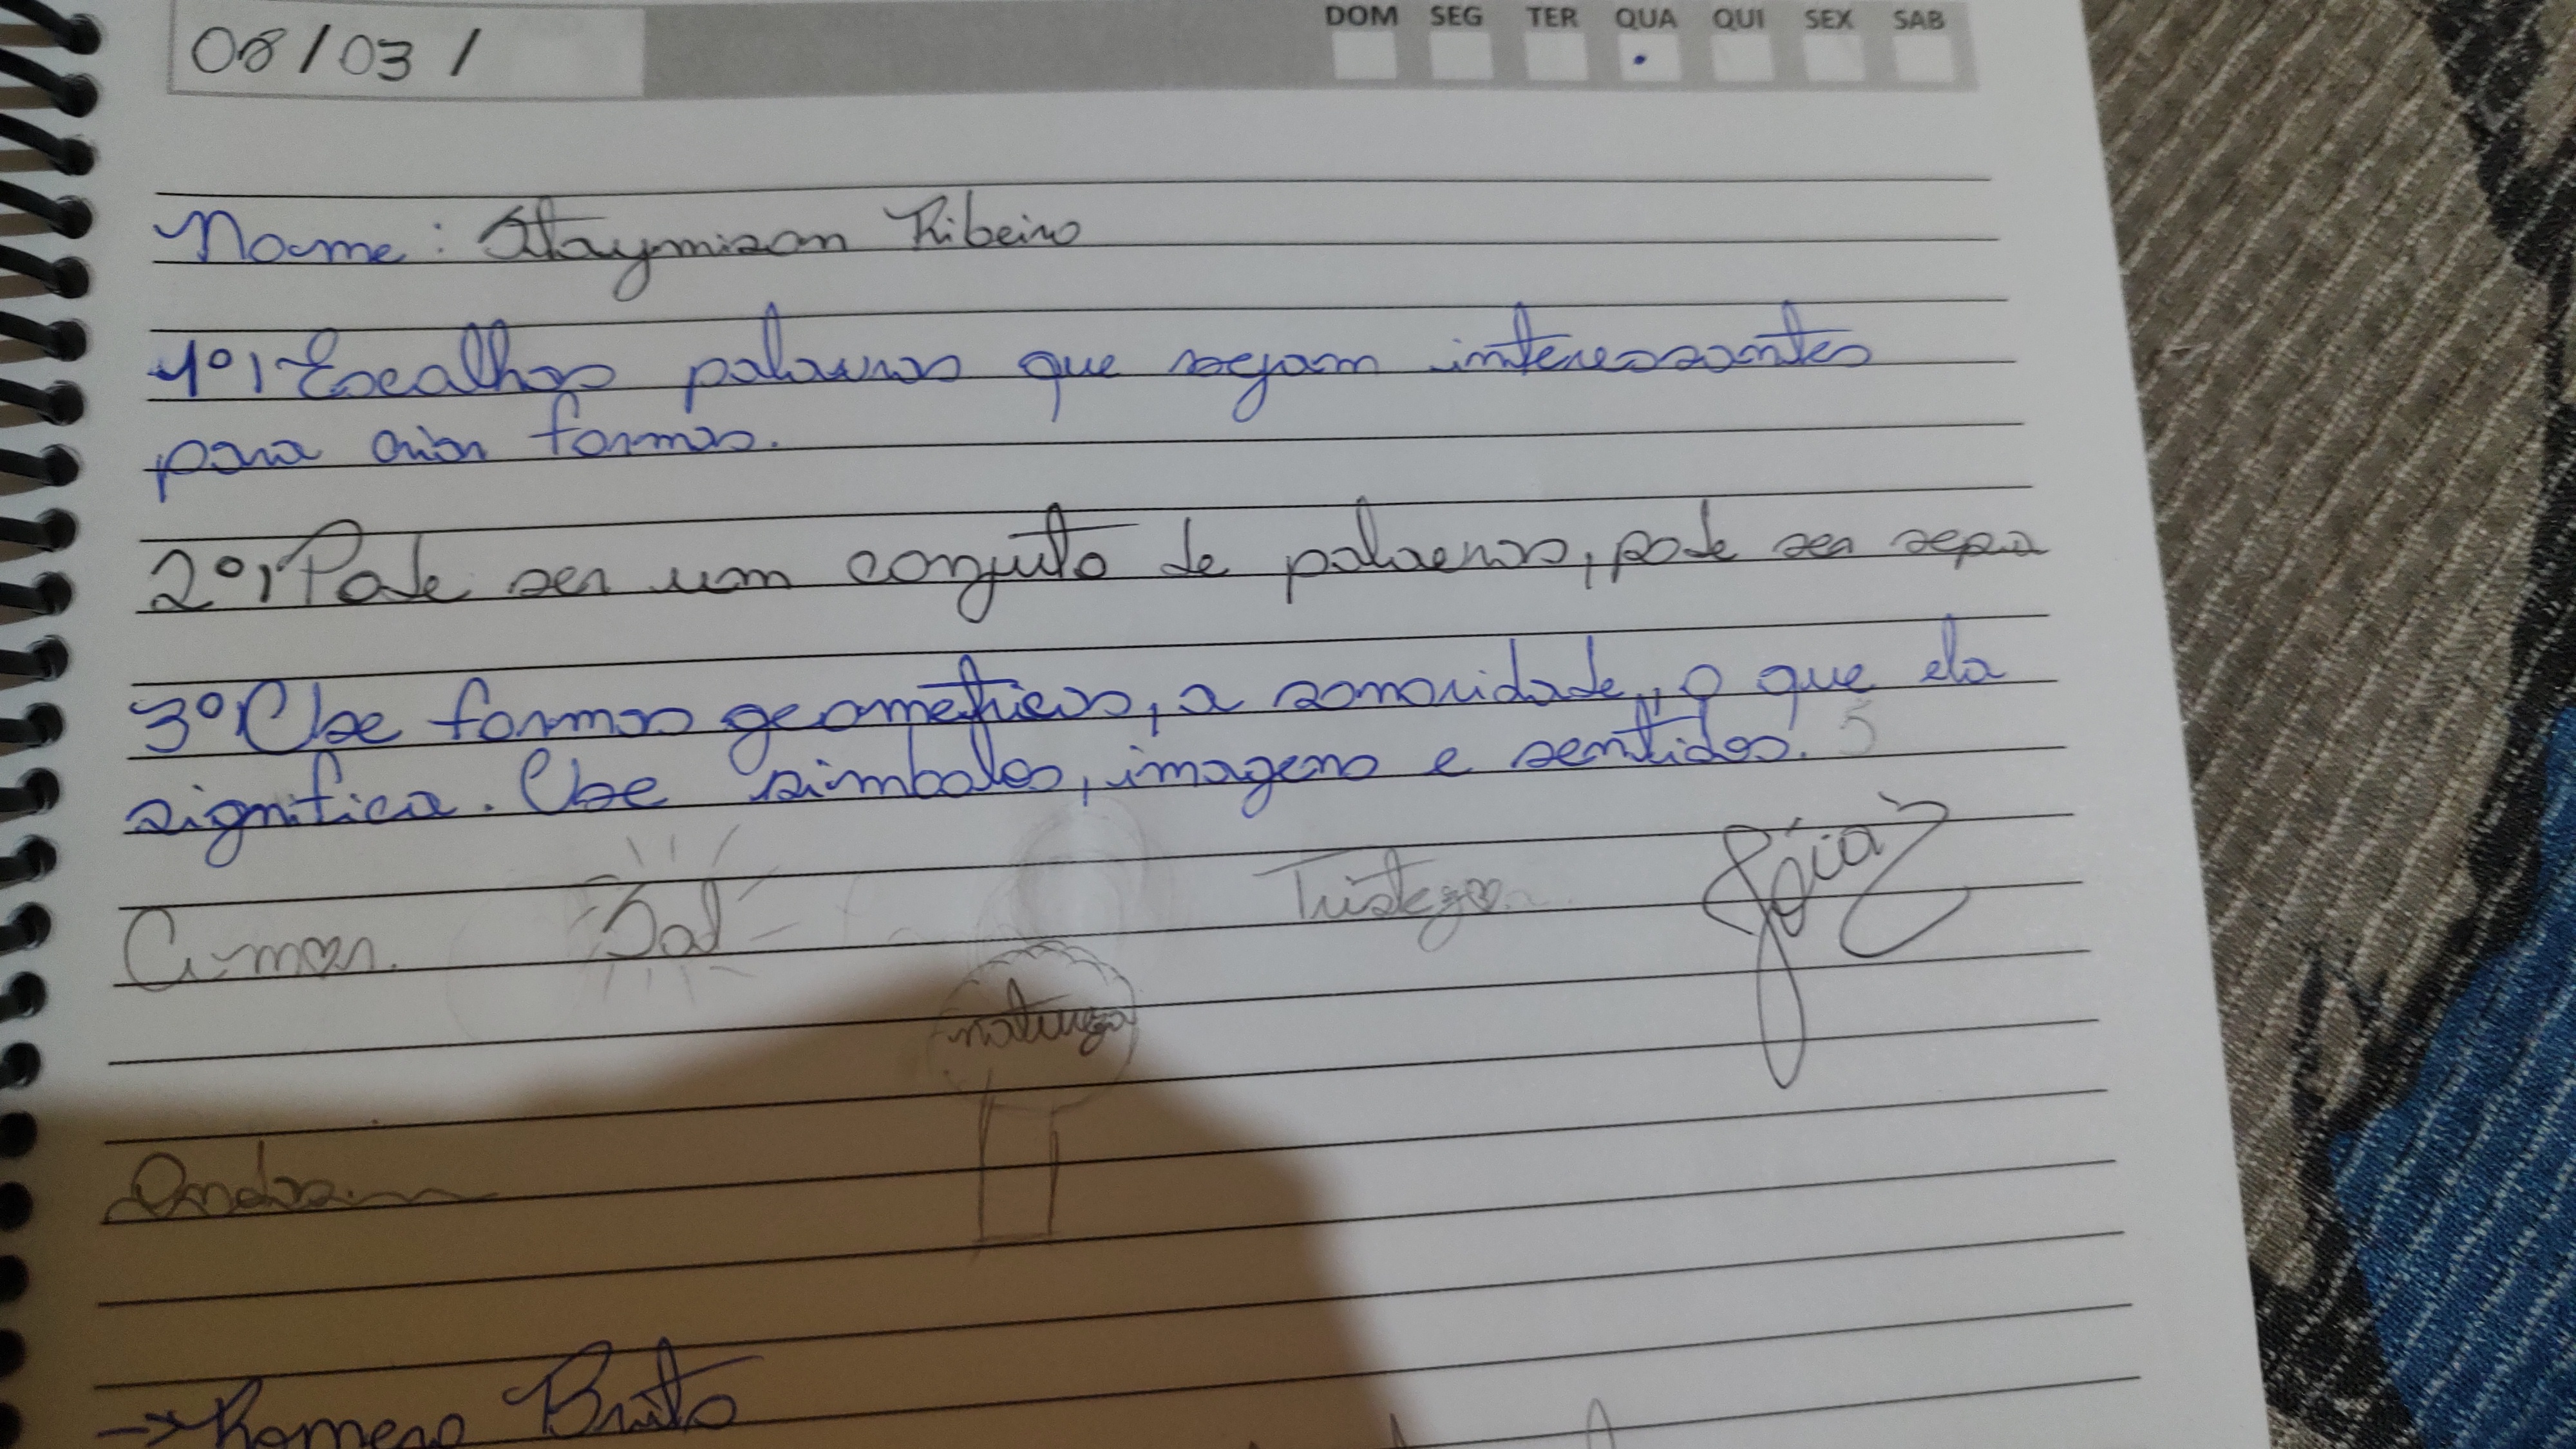 DOM SEG TER QUA QUI SEX SAB
08/03/
Nome: Staymison Ribeiro
1º| Escolhas palavras que sejam interessantes
para criar formas.
2º| Pode ser um conjuto de palavras, pode ser sepa
3º Use formas geométricas, a sonoridade, o que ela
significa. Use simbolos, imagens e sentidos. 5
Amor. Sol Tristeza
natureza
→ Romero Britto